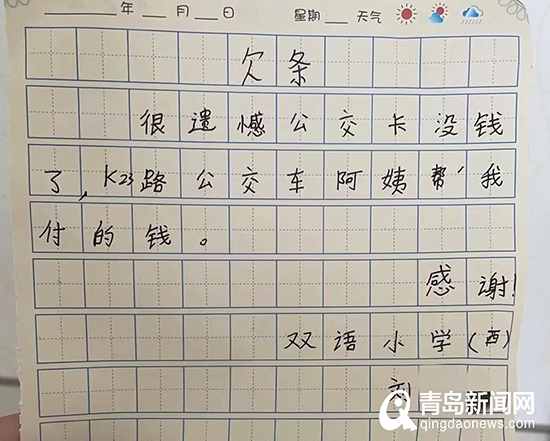 年 月 日 星期 天气
欠条
很遗憾公交卡没钱
了，K23路公交车阿姨帮我
付的钱。
感谢！
双语小学（西）
刘
青岛新闻网
qingdaonews.com